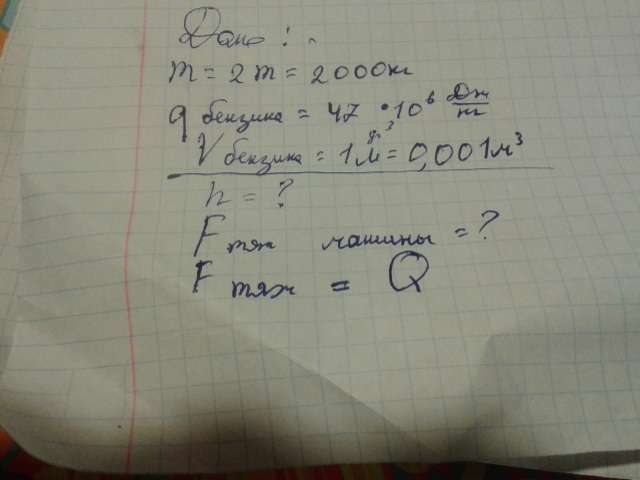 Дано:
m = 2 т = 2000кг
q бензина = 47 • 10⁶ Дж/кг
V бензина = 1 дм³ = 0,001 м³
h = ?
Fтяж машины = ?
Fтяж = Q